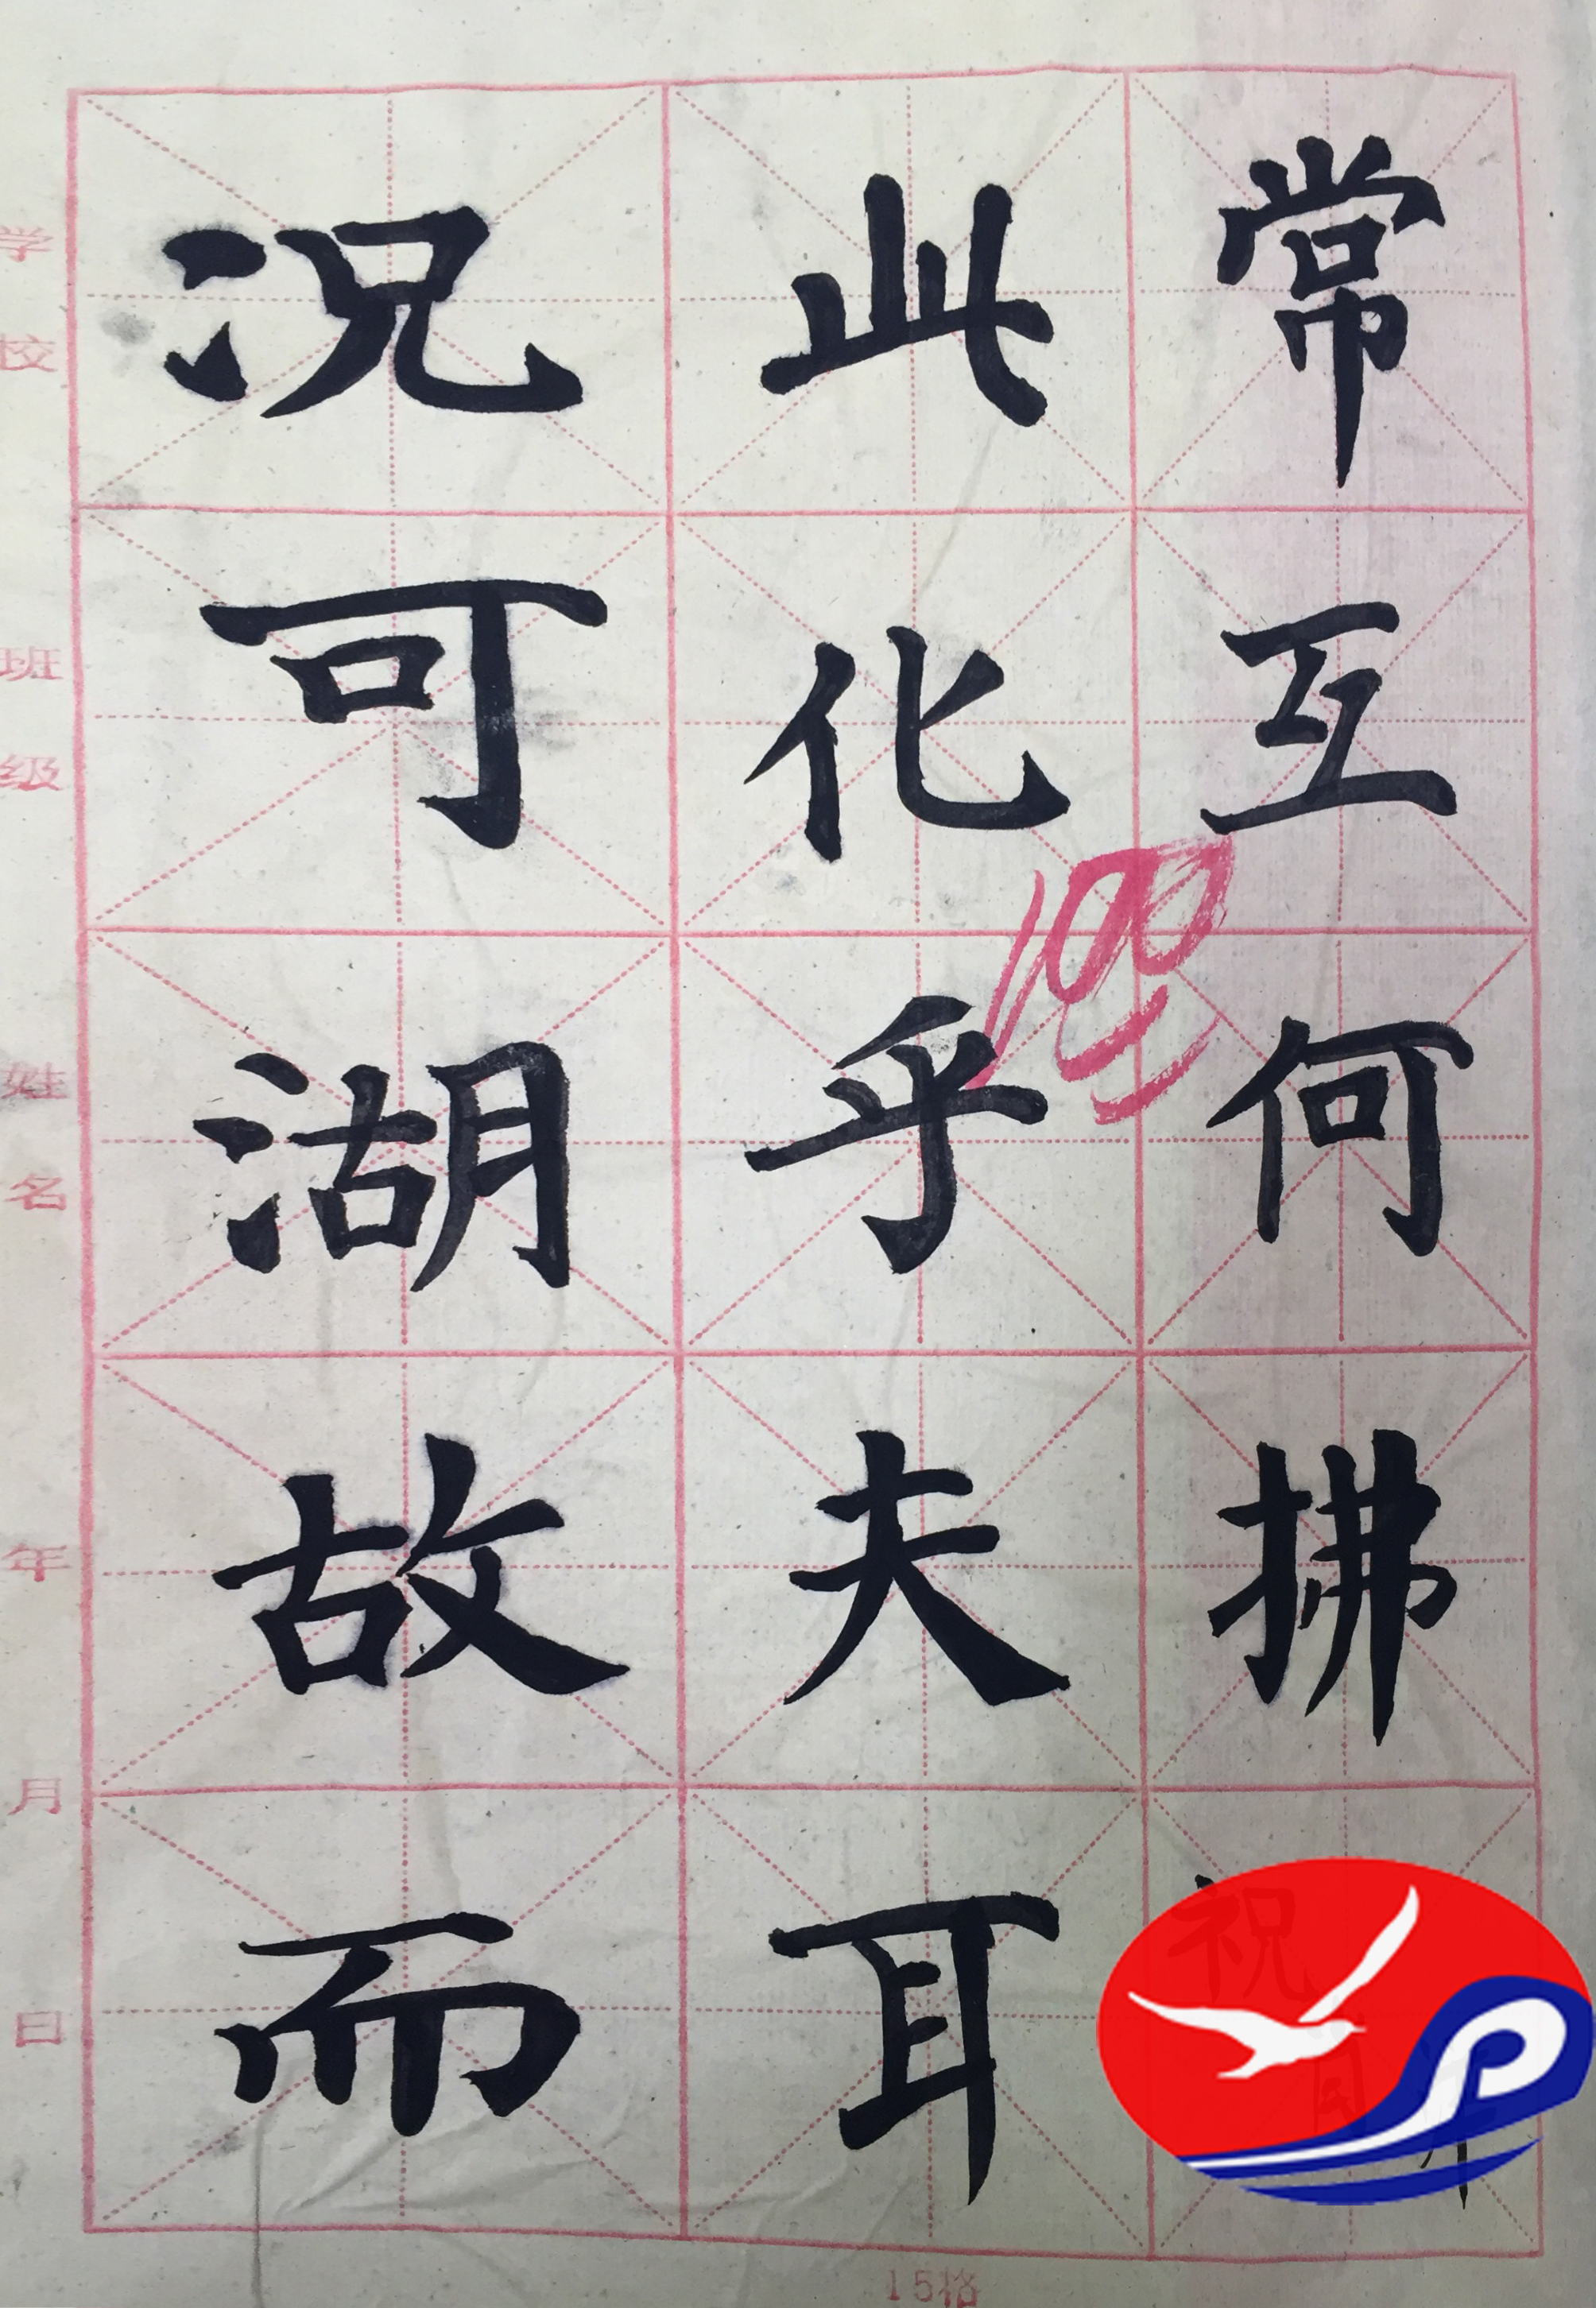 常互何拂
此化乎夫耳
况可湖故而
100
学校 班级 姓名 年 月 日
15格